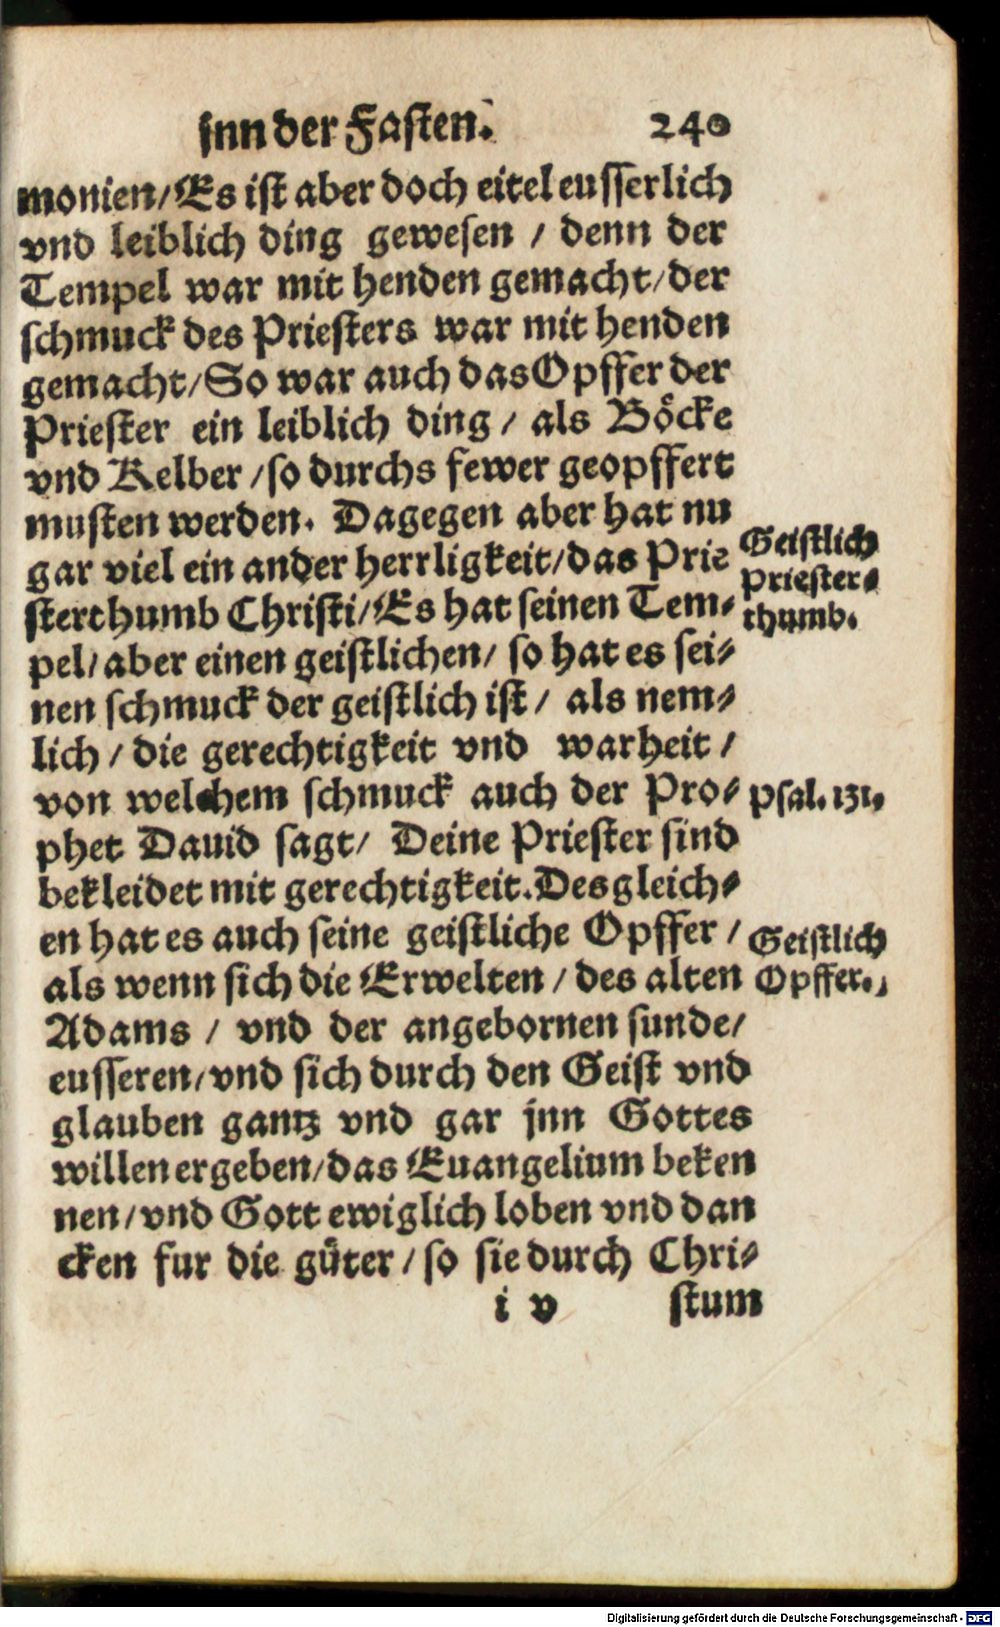 jnn der Fasten. 240
monien/Es ist aber doch eitel eusserlich
vnd leiblich ding gewesen / denn der
Tempel war mit henden gemacht/der
schmuck des Priesters war mit henden
gemacht/So war auch das Opffer der
Priester ein leiblich ding / als Böcke
vnd Kelber /so durchs fewer geopffert
musten werden. Dagegen aber hat nu
gar viel ein ander herrligkeit/das Prie
sterthumb Christi/Es hat seinen Tem-
pel/aber einen geistlichen/ so hat es sei-
nen schmuck der geistlich ist / als nem-
lich / die gerechtigkeit vnd warheit /
von welchem schmuck auch der Pro-
phet Dauid sagt/ Deine Priester sind
bekleidet mit gerechtigkeit. Desgleich-
en hat es auch seine geistliche Opffer /
als wenn sich die Erwelten / des alten
Adams / vnd der angebornen sunde/
eusseren/vnd sich durch den Geist vnd
glauben gantz vnd gar jnn Gottes
willen ergeben/das Euangelium beken
nen/vnd Gott ewiglich loben vnd dan
cken fur die güter /so sie durch Chri-
i v stum
Geistlich
Priester-
thumb.
Psal. 131.
Geistlich
Opffer.
Digitalisierung gefördert durch die Deutsche Forschungsgemeinschaft - DFG